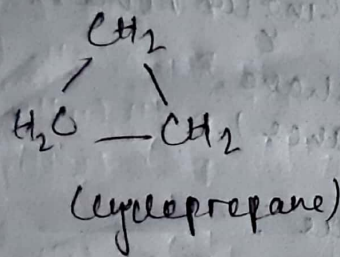 CH2
H2C — CH2
(cyclopropane)